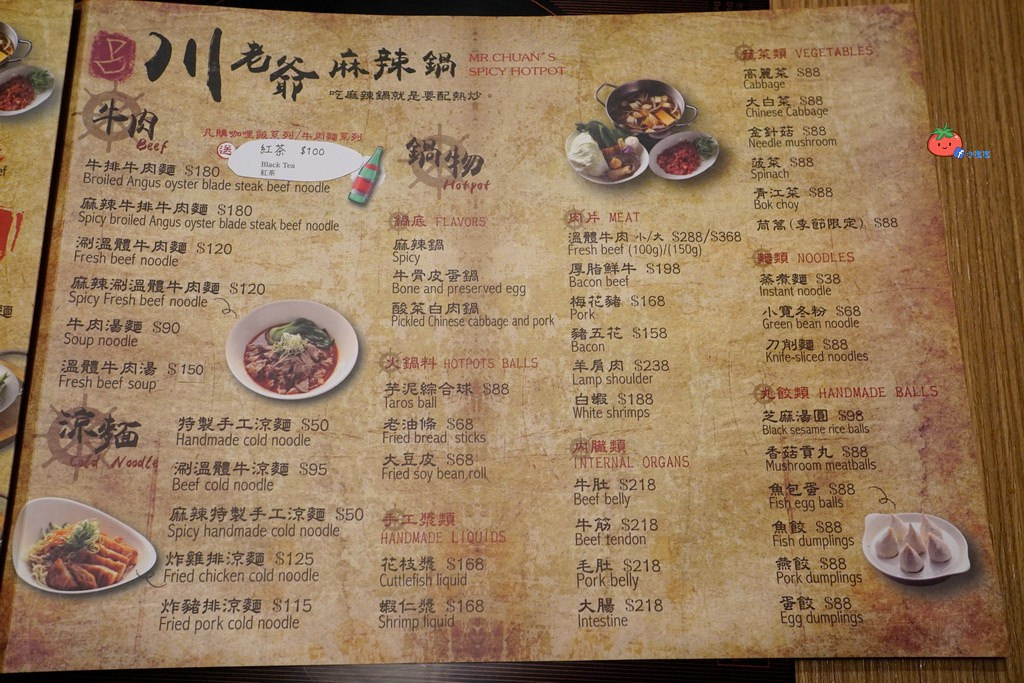 川老爺 麻辣鍋
MR CHUAN'S
SPICY HOTPOT
吃麻辣鍋就是要配熱炒。
牛肉
Beef
凡購咖哩飯系列/牛肉麵系列
送
紅茶 $100
Black Tea
紅茶
牛排牛肉麵 $180
Broiled Angus oyster blade steak beef noodle
麻辣牛排牛肉麵 $180
Spicy broiled Angus oyster blade steak beef noodle
涮溫體牛肉麵 $120
Fresh beef noodle
麻辣涮溫體牛肉麵 $120
Spicy Fresh beef noodle
牛肉湯麵 $90
Soup noodle
溫體牛肉湯 $150
Fresh beef soup
涼麵
Cold Noodle
特製手工涼麵 $50
Handmade cold noodle
涮溫體牛涼麵 $95
Beef cold noodle
麻辣特製手工涼麵 $50
Spicy handmade cold noodle
炸雞排涼麵 $125
Fried chicken cold noodle
炸豬排涼麵 $115
Fried pork cold noodle
鍋物
Hotpot
鍋底 FLAVORS
麻辣鍋
Spicy
牛骨皮蛋鍋
Bone and preserved egg
酸菜白肉鍋
Pickled Chinese cabbage and pork
火鍋料 HOTPOTS BALLS
芋泥綜合球 $88
Taros ball
老油條 $68
Fried bread sticks
大豆皮 $68
Fried soy bean roll
手工漿類
HANDMADE LIQUIDS
花枝漿 $168
Cuttlefish liquid
蝦仁漿 $168
Shrimp liquid
肉片 MEAT
溫體牛肉 小/大 $288/$368
Fresh beef (100g)/(150g)
厚脂鮮牛 $198
Bacon beef
梅花豬 $168
Pork
豬五花 $158
Bacon
羊肩肉 $238
Lamp shoulder
白蝦 $188
White shrimps
內臟類
INTERNAL ORGANS
牛肚 $218
Beef belly
牛筋 $218
Beef tendon
毛肚 $218
Pork belly
大腸 $218
Intestine
蔬菜類 VEGETABLES
高麗菜 $88
Cabbage
大白菜 $88
Chinese Cabbage
金針菇 $88
Needle mushroom
菠菜 $88
Spinach
青江菜 $88
Bok choy
茼蒿(季節限定) $88
麵類 NOODLES
蒸煮麵 $38
Instant noodle
小寬冬粉 $68
Green bean noodle
刀削麵 $88
Knife-sliced noodles
丸餃類 HANDMADE BALLS
芝麻湯圓 $98
Black sesame rice balls
香菇貢丸 $88
Mushroom meatballs
魚包蛋 $88
Fish egg balls
魚餃 $88
Fish dumplings
燕餃 $88
Pork dumplings
蛋餃 $88
Egg dumplings